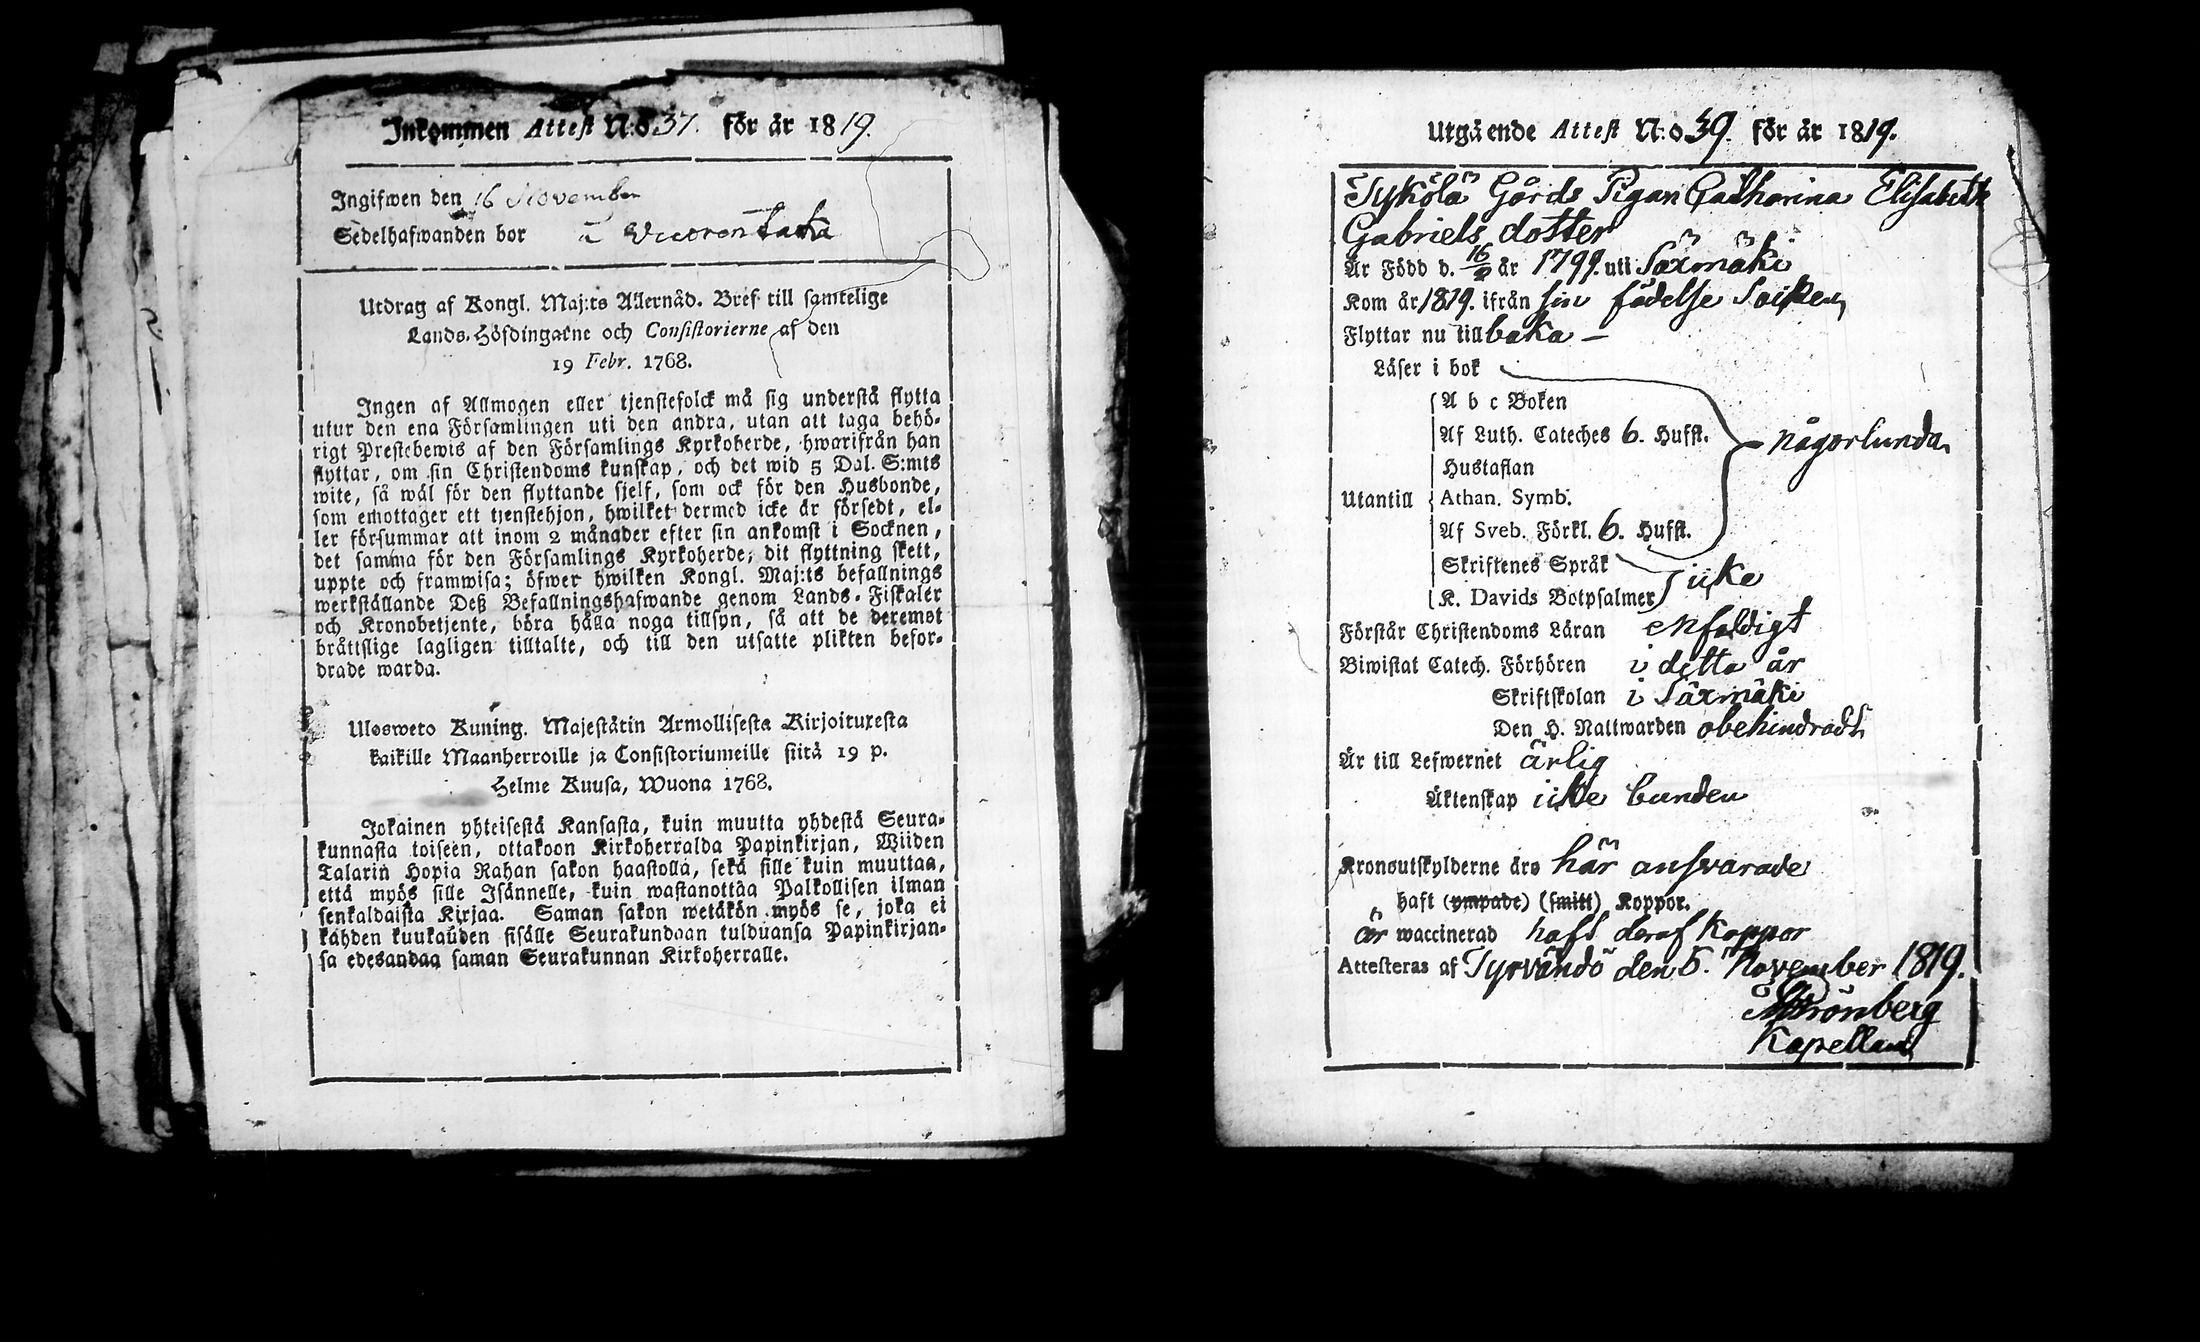 Inkommen Attest N:o 37. för år 1819.
Ingifwen den 16 November
Sedelhafwanden bor i Wuorentaka
Utdrag af Kongl. Maj:ts Allernåd. Bref till samtelige
Lands-Höfdingarne och Consistorierne af den
19 Febr. 1768.
Ingen af Allmogen eller tjenstefolck må sig understå flytta
utur den ena Församlingen uti den andra, utan att taga behö-
rigt Prestebewis af den Församlings Kyrkoherde, hwarifrån han
flyttar, om sin Christendoms kunskap, och det wid 5 Dal. S:mts
wite, så wäl för den flyttande sjelf, som ock för den Husbonde,
som emottager ett tjenstehjon, hwilket dermed icke är försedt, el-
ler försummar att inom 2 månader efter sin ankomst i Socknen,
det samma för den Församlings Kyrkoherde, dit flyttning skett,
uppte och framwisa; öfwer hwilken Kongl. Maj:ts befallnings
werkställande Deß Befallningshafwande genom Lands-Fiskaler
och Kronobetjente, böra hålla noga tillsyn, så att de deremot
bråttslige lagligen tilltalte, och till den utsatte plikten befor-
drade warda.
Ulosweto Kuning. Majestätin Armollisesta Kirjoituxesta
kaikille Maanherroille ja Consistoriumeille siitä 19 p.
Helme Kuusa, Wuona 1768.
Jokainen yhteisestä Kansasta, kuin muutta yhdestä Seura-
kunnasta toiseen, ottakoon Kirkoherralda Papinkirjan, Wiiden
Talarin Hopia Rahan sakon haastolla, sekä sille kuin muuttaa,
että myös sille Isännelle, kuin wastanottaa Palkollisen ilman
senkaldaista Kirjaa. Saman sakon wetäkön myös se, joka ei
kahden kuukauden sisälle Seurakundaan tulduansa Papinkirjan-
sa edesandaa saman Seurakunnan Kirkoherralle.
Utgående Attest N:o 39. för år 1819.
Tykölä Gårds Pigan Catharina Elisabeth
Gabriels dotter
Är Född d. 16/2 år 1799. uti Säxmäki
Kom år 1819. ifrån sin födelse Socken
Flyttar nu till baka —
Läser i bok
A b c Boken
Af Luth. Cateches 6. Hufst. någorlunda
Hustaflan
Utantill Athan. Symb.
Af Sveb. Förkl. 6. Hufst.
Skriftenes Språk
K. Davids Botpsalmer icke
Förstår Christendoms Läran enfaldigt
Biwistat Catech. Förhören i detta år
Skriftskolan i Säxmäki
Den H. Nattwarden obehindradt
Är till Lefwernet ärlig
Äktenskap icke bunden
Kronoutskylderne äro här answarade
haft (ympade) (smitt) Koppor.
är waccinerad haft deraf koppor
Attesteras af Tyrvändö den 6. November 1819.
Kapellan